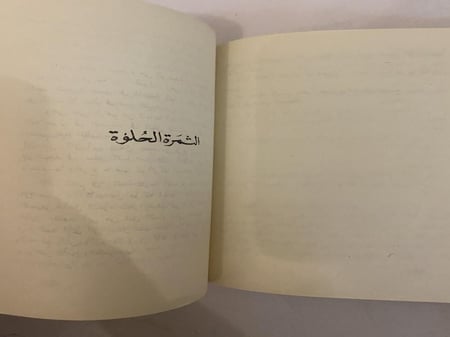 الثمَرة الحُلوَة